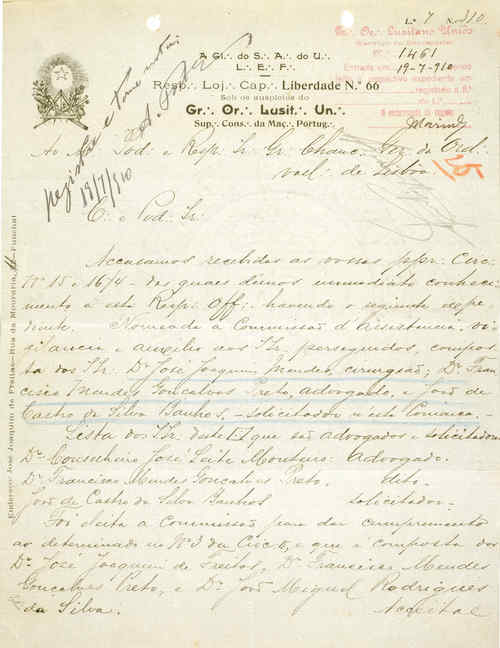 L.ª 7 N.º 310
Gr.·. Or.·. Lusitano Unido
N.º 1461
19-7-910
registe e tome nota
18/7/910
A Gl.·. do S.·. A.·. do U.·.
L.·. E.·. F.·.
Resp.·. Loj.·. Cap.·. Liberdade N.º 66
Sob os auspicios do
Gr.·. Or.·. Lusit.·. Un.·.
Sup.·. Cons.·. da Maç.·. Portug.·.
Ao M. Pod. e Resp. Ir. Gr. Chanc. Ger. da Ord.
vall. de Lisboa
25
C. e Pod. Ir.
Accusamos recebidas as vossas ppr. Circ.
Nº 15 e 16/4 - das quaes démos immediato conheci-
mento a esta Resp. Off. havendo o seguinte expe-
diente. Nomeada a Commissão d'Assistencia, vi-
gilancia e auxilio aos Ir. perseguidos, compos-
ta dos Ir. Dr. José Joaquim Mendes, cirurgião; Dr. Fran-
cisco Mendes Gonçalves Preto, advogado, e João de
Castro da Silva Banhos, - solicitador n'esta Comarca. -
Lista dos Ir. que são advogados e solicitadores
Dr. Conselheiro José Leite Monteiro: Advogado.
Dr. Francisco Mendes Gonçalves Preto, dito.
João de Castro da Silva Banhos solicitador.
Foi eleita a commissão para dar cumprimento
ao determinado no Nº 3 da Circ. e que é composta dos
Dr. José Joaquim de Freitas, Dr. Francisco Mendes
Gonçalves Preto, e Dr. João Miguel Rodrigues
da Silva. Acceitae
Endereço: José Joaquim de Freitas—Rua da Mouraria, —Funchal